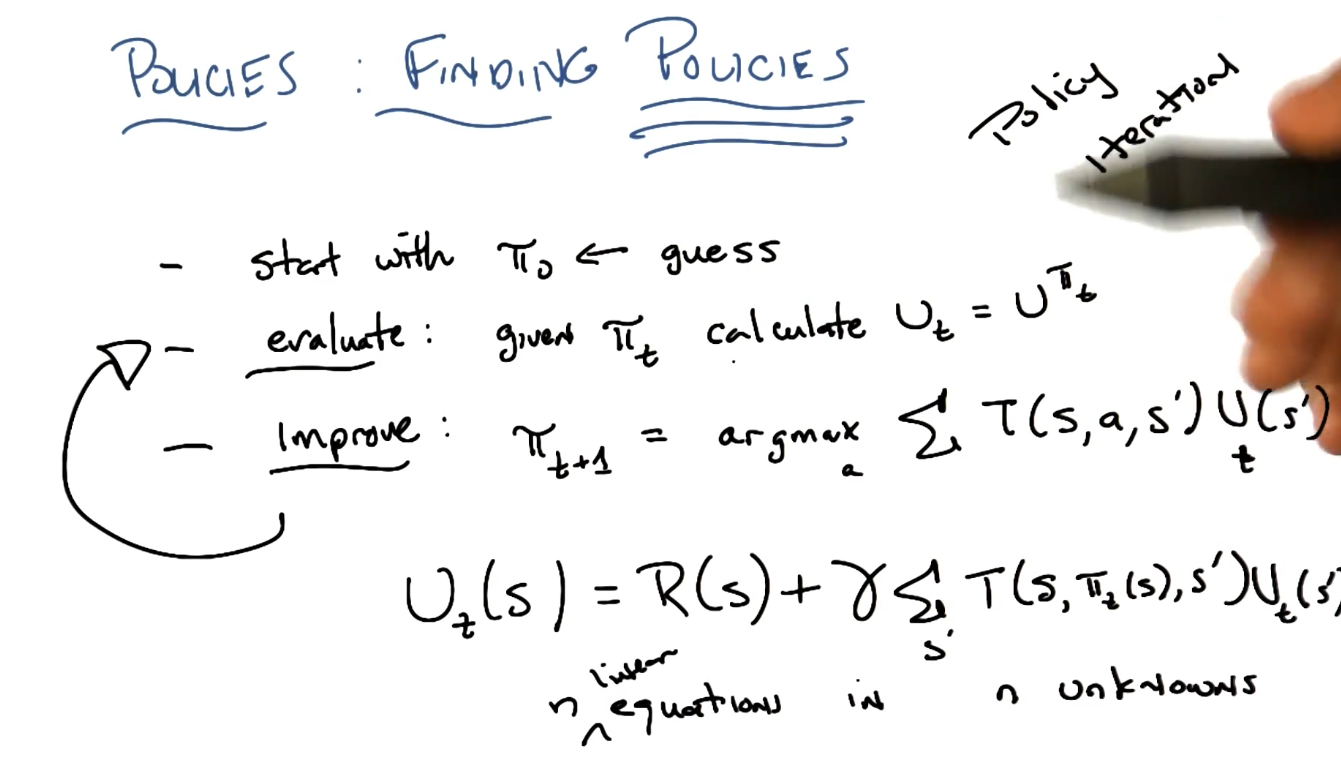 POLICIES : FINDING POLICIES
Policy
Iteration
- start with π₀ ← guess
- evaluate: given π_t calculate U_t = U^π_t
- Improve: π_t+1 = argmax_a Σ T(s,a,s') U_t(s')
U_t(s) = R(s) + γ Σ_s' T(s, π_t(s), s') U_t(s'
n linear equations in n unknowns